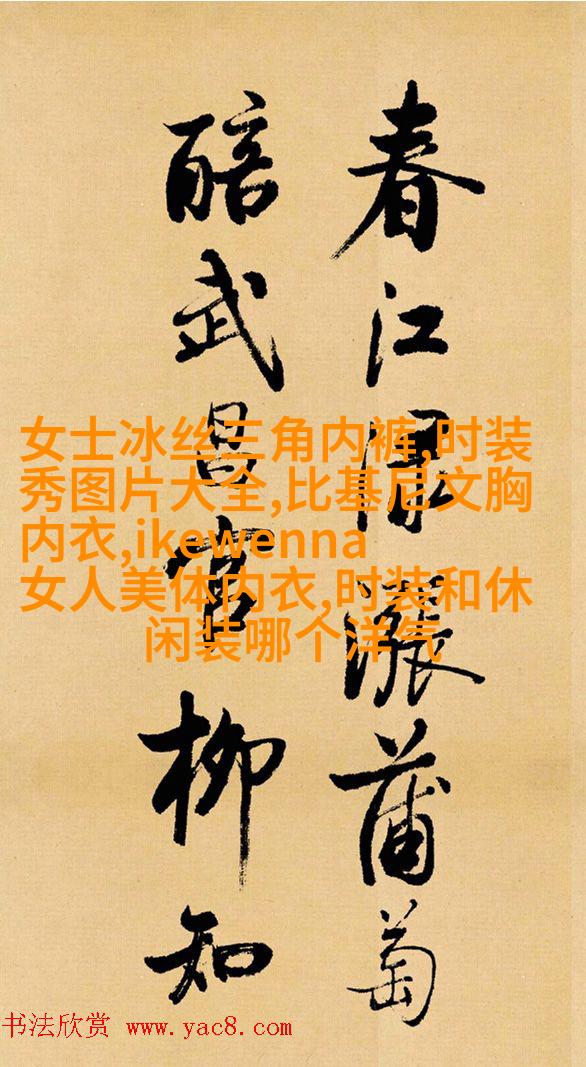 春江渌漲蒲萄
醅武昌官柳知
女士冰丝三角内裤,时装
秀图片大全,比基尼文胸
内衣,ikewenna
女人美体内衣,时装和休
闲装哪个洋气
书法欣赏 www.yac8.com